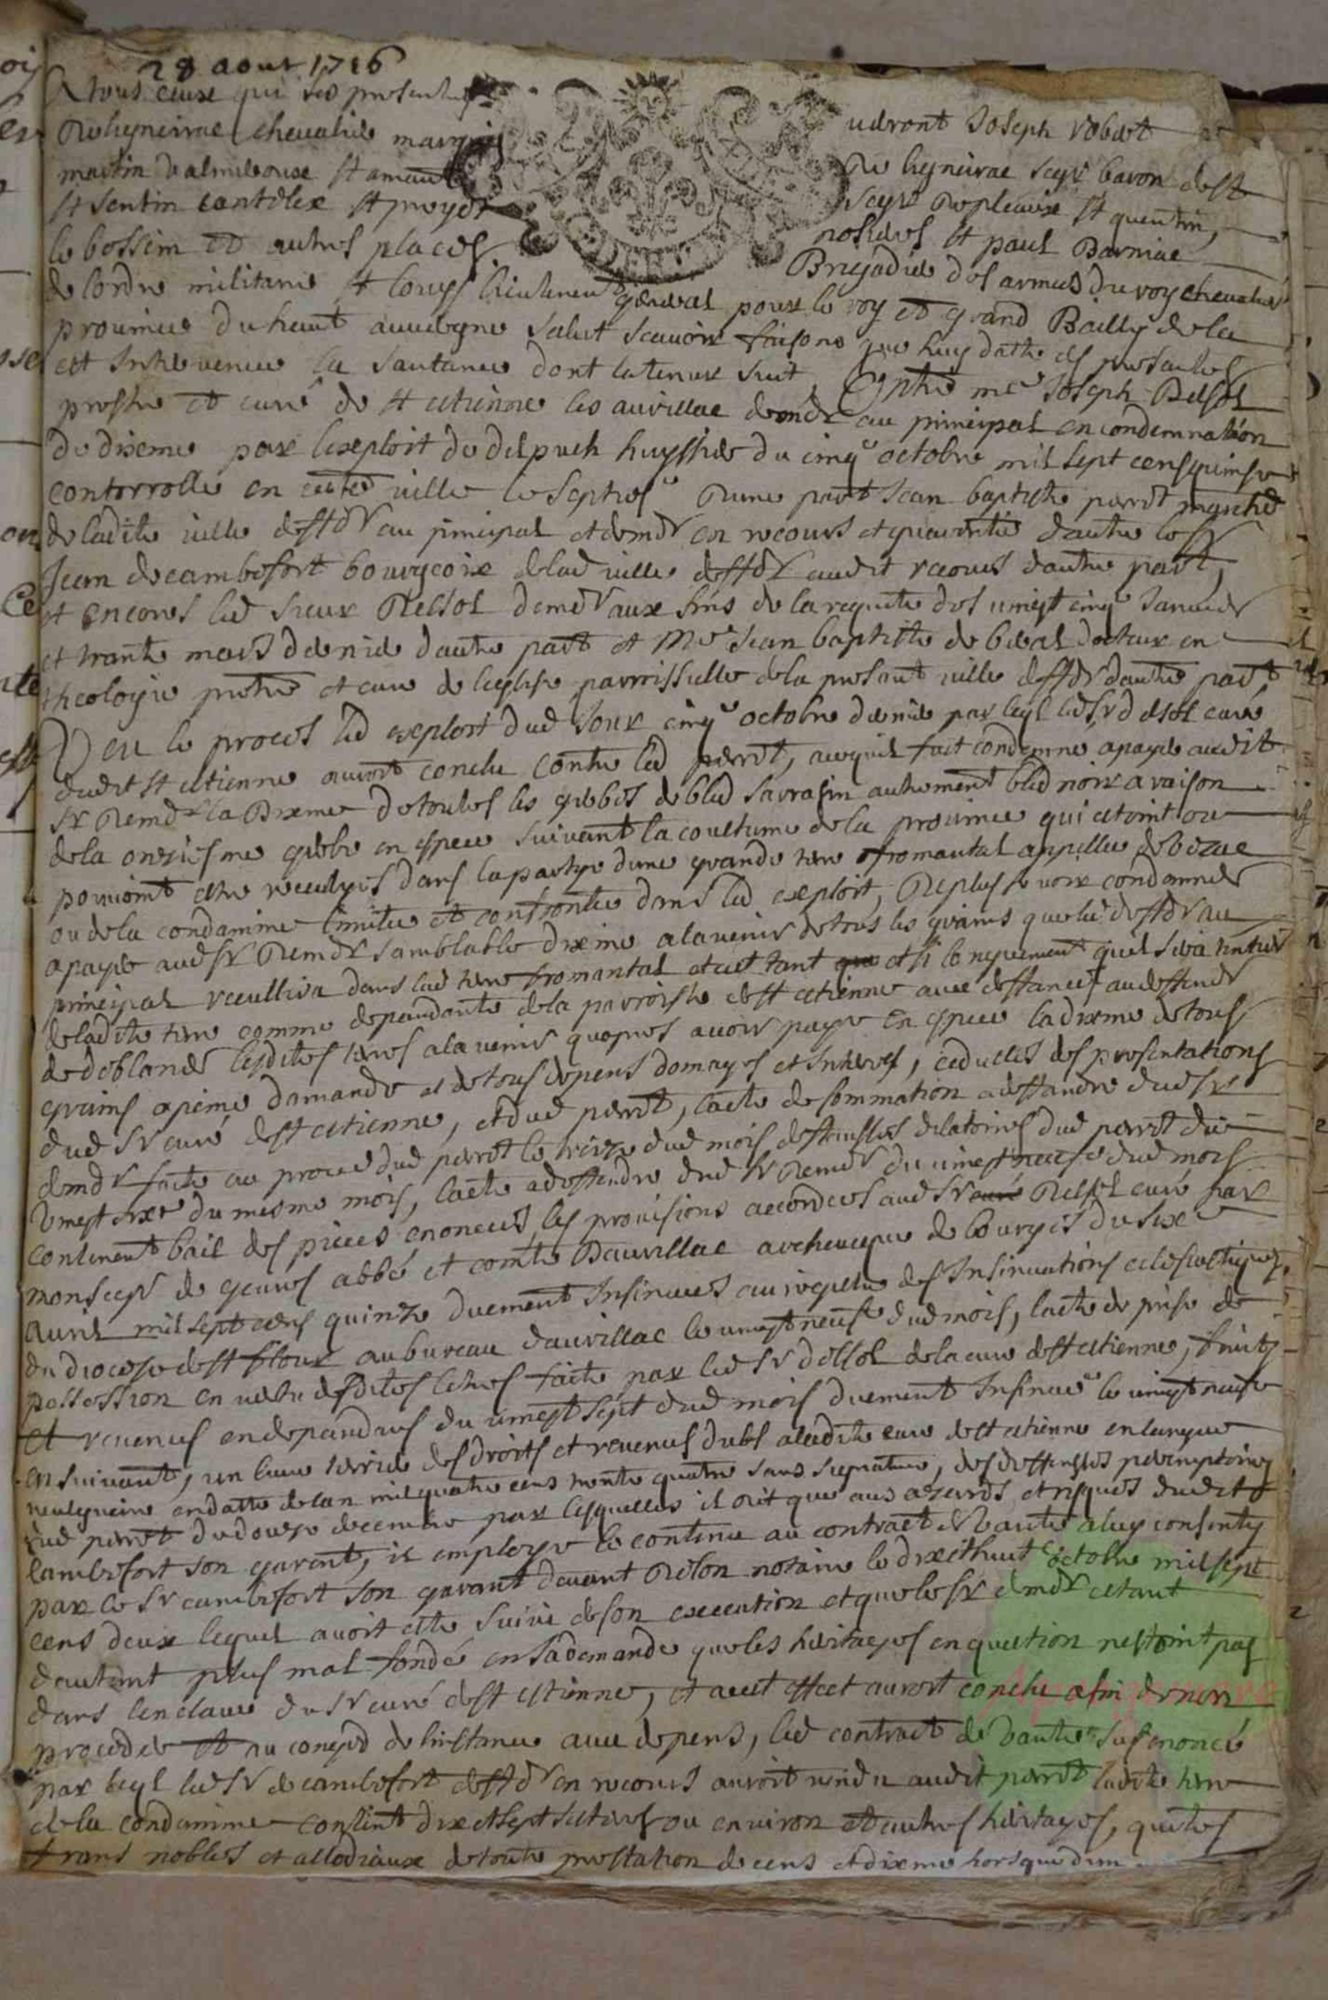 28 aout 1716
A tous ceux qui les presentes verront Joseph robert
De ligneirac chevalier marquis De ligneirac seigr baron de st
martin valmeroux st amant seigr De pleaux st quentin,
st sentin cantelex st proyet nosieres st paul Barriac
le bossim et autres places Brigadier des armees du roy chevalier
de lordre militaire st louys lieutenent general pour le roy et grand Bailly de la
province du haut auvergne salut scavoir faisons que huy datte des presantes
est Intervenue la santance dont la teneur suit, Entre me Joseph Delsol
prestre et curé de st etienne les aurillac demdr au principal en condemnation
de disme par lexploit de delpuch huyssier du cinqe octobre mil sept cens quinse
controrolle en cette ville le septies Dune part Jean baptiste perret marchd
de ladite ville deffdr au principal et demdr en recours et guarentie dautre le sr
Jean de cambefort bourgeois de lad ville deffdr audit recours dautre part,
et encores led sieur Delsol demdr aux fins de la requete des vingt cinq Janvier
et trante mars dernier dautre part et Me Jean baptiste de beral docteur en
theologie pretre et cure de leglise parroissielle de la presant ville deffdr dautre part,
Veu le proces led exploit dud jour cinqe octobre dernier par leql led sr delsol curé
dudit st etienne auroit conclu contre led perret, acequil fut condemne a payer audit
sr Demdr la Dixme de toutes les gerbes de bled sarrasin autrement bled noir a raison
de la onziesme gerbe en espece suivant la coultume de la province qui estoint ou
pouvoint etre receulyes dans la partye dune grande terre fromantal appellee de bezac
ou de la condamine limitée et confrontée dans led exploit, De plus se voir condamner
a payer aud sr Demdr samblable dixme a lavenir de tous les grains que led deffdr au
principal receullira dans lad terre fromantal et ce tant et si longuement quel sera tenter
de ladite terre comme dependante de la parroisse de st etienne avec deffances au deffendr
de deblander lesdites terres a lavenir quapres avoir paye en espece la dixme de tous
grains a peine damande et de tous depens domages et Interes, cedulles des presentations
dud sr curé de st etienne, et dud perret, lacte de sommation a deffandre dud sr
demdr faite au procur dud perret le treize dud mois deffenses dilatoires dud perret du
vingt sixe du mesme mois, lacte a deffendre dud sr Demdr du vingt neuf dud mois
continent bail des pieces enoncees, les provisions accordees aud sr Delsol curé par
monseigr de gevres abbé et comte Daurillac archeveque de bourges du sixe
avril mil sept cens quinze duement Insinuees au registre des Insinuations eclesiastiques
du diocese de st flour au bureau daurillac le vingt neuf dud mois, lacte de prise de
possession en vertu desdites letres faite par led sr delsol de la cure de st etienne, fruits
et revenus en dependans du vingt sept dud mois duement Insinué le vingt neuf
en suivant, un livre terrier des droits et revenus dubs a ladite cure de st etienne en langue
en datte de lan mil quatre cens trente quatre sans signature, des deffenses peremptoires
dud perret du douze decembre par lesquelles il dit que aux azards et risques dudit
cambefort son garent, il employe le contenu au contract de vante a luy consenty
par le sr cambefort son garant devant Delon notaire le dixethuit octobre mil sept
cens deux lequel avoit esté suivi de son execution et que le sr demdr etant
dautant plus mal fondé en sa demande que les heritages en question nestoint pas
dans lenclave du sr curé de st etienne, et a cet effect auroit conclu afin de non
proceder et au congéd de linstance avec depens, led contract de vante susenoncé
par leql led sr de cambefort deffdr en recours auroit vendu audit perret ladite terre
de la condamine contint dix et sept seterées ou environ et autres heritages, quites
francs nobles et allodiaux de toute prestation de cens et dixme hors que dun